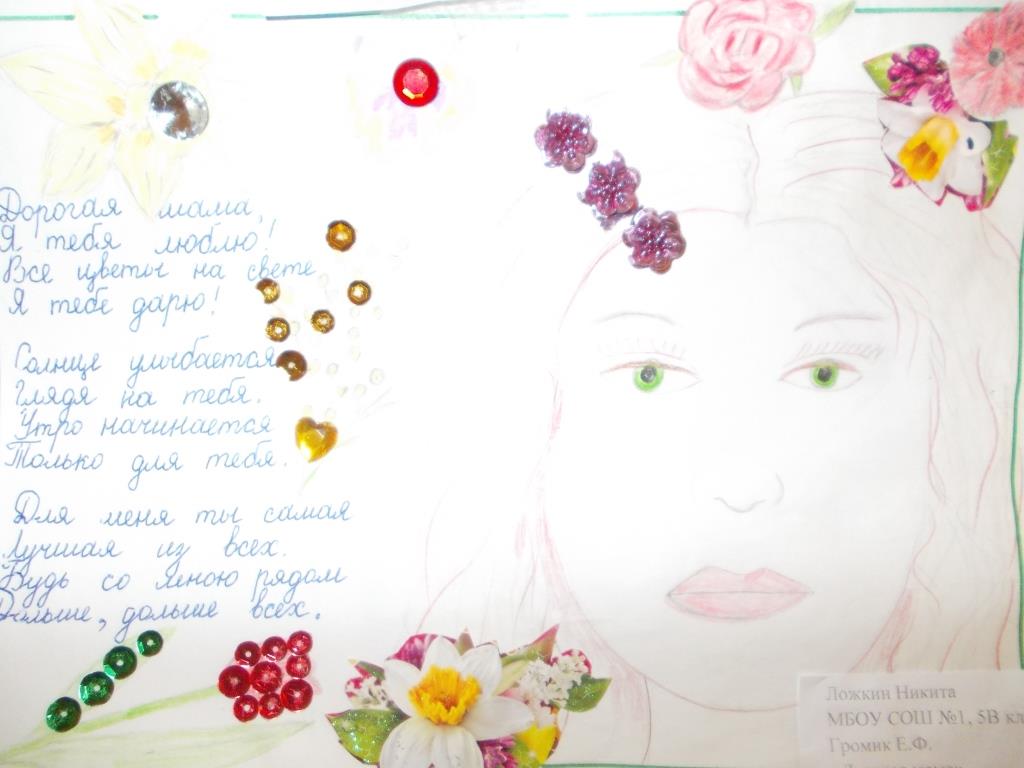 Дорогая мама,
Я тебя люблю!
Все цветы на свете
Я тебе дарю!
Солнце улыбается
Глядя на тебя.
Утро начинается
Только для тебя.
Для меня ты самая
Лучшая из всех.
Будь со мною рядом
Дольше, дольше всех.
Ложкин Никита
МБОУ СОШ №1, 5В кл
Громик Е.Ф.